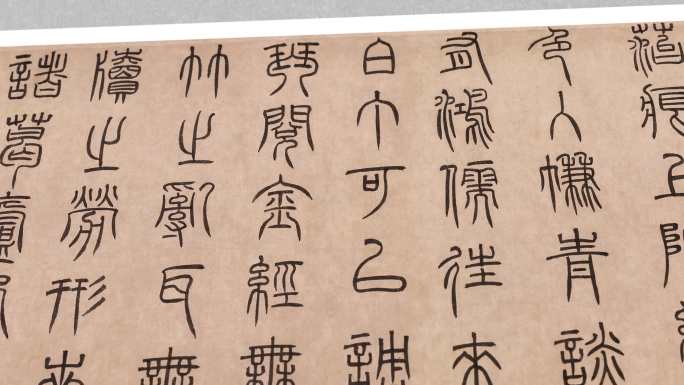 苔痕上階
色入簾青談
有鴻儒往來
白丁可以調
琴閱金經無
竹之亂耳無
牘之勞形南
諸葛廬